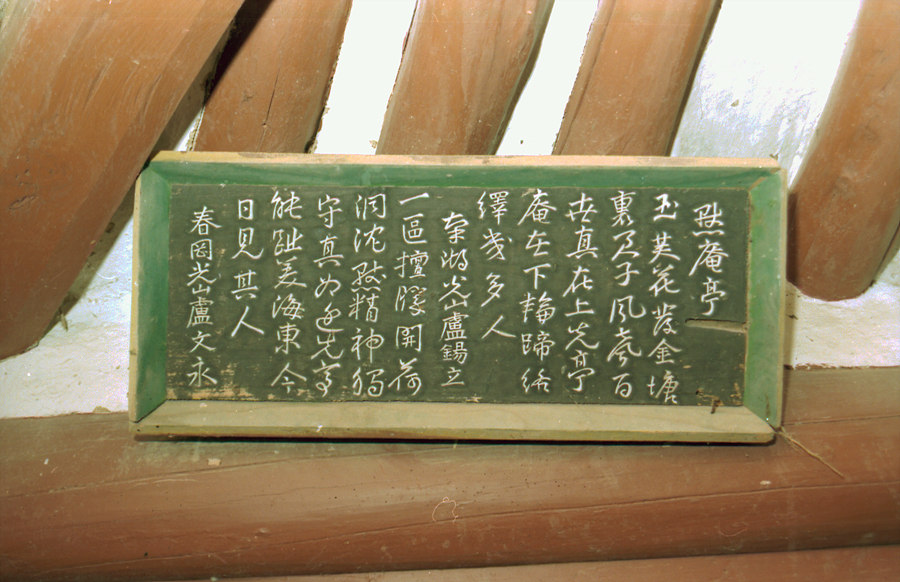 默庵亭
玉英花發金塘
裏君子風處百
世真在上光亭
庵在下輪蹄絡
繹幾多人
湖光山盧錫立
一區擅勝開荷
洞沈默精神獨
守真如先亭
能趾美海東今
日見其人
春岡光山盧文永